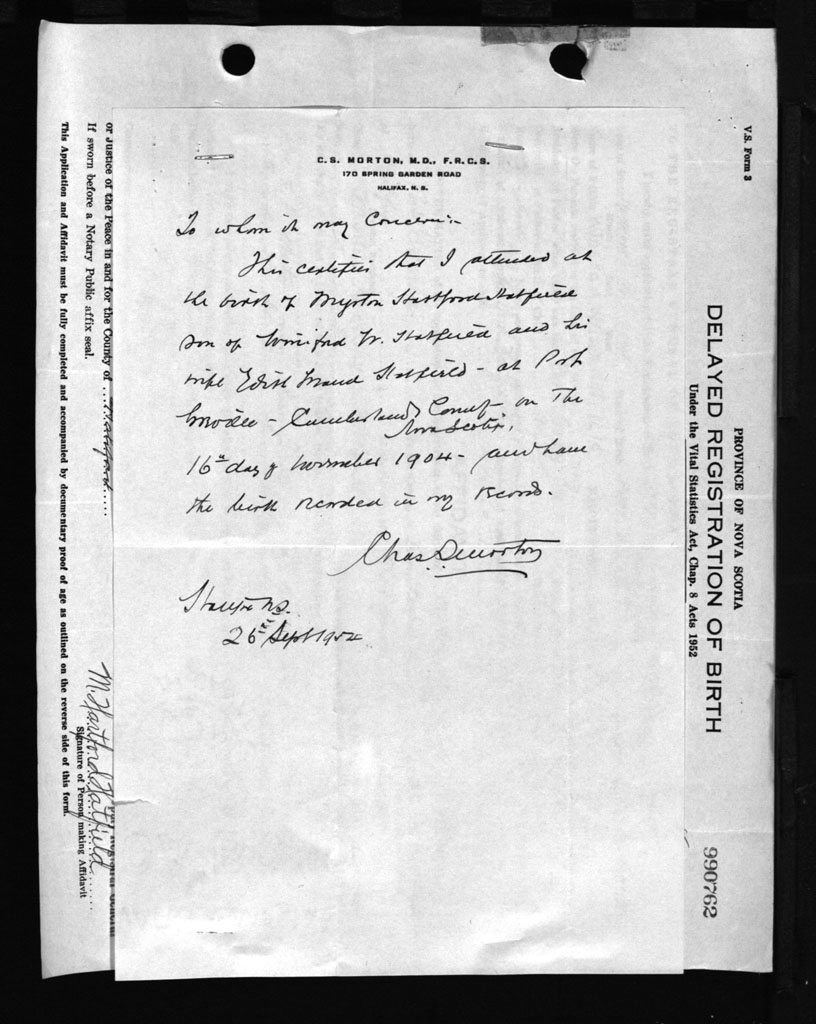 V.S. Form 3
PROVINCE OF NOVA SCOTIA
DELAYED REGISTRATION OF BIRTH
Under the Vital Statistics Act, Chap. 8 Acts 1952
990762
C. S. MORTON, M.D., F.R.C.S.
170 SPRING GARDEN ROAD
HALIFAX, N. S.
To whom it may Concern:-
This certifies that I attended at
the birth of Myrton Hartford Hatfield
son of Winiford W. Hatfield and his
wife Edith Maud Hatfield - at Port
Greville - Cumberland County on The
Nova Scotia,
16th day of November 1904 - and have
the birth recorded in my records.
Chas. S. Morton
Halifax N.S.
26th Sept 1952
or Justice of the Peace in and for the County of
If sworn before a Notary Public affix seal.
This Application and Affidavit must be fully completed and accompanied by documentary proof of age as outlined on the reverse side of this form.
M. Hartford Hatfield
Signature of Person making Affidavit
General